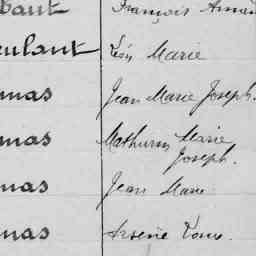 François
Marie
mas Jean Marie Joseph.
mas Mathurin Marie
Joseph.
mas Jean Marie
mas Arsène Louis.